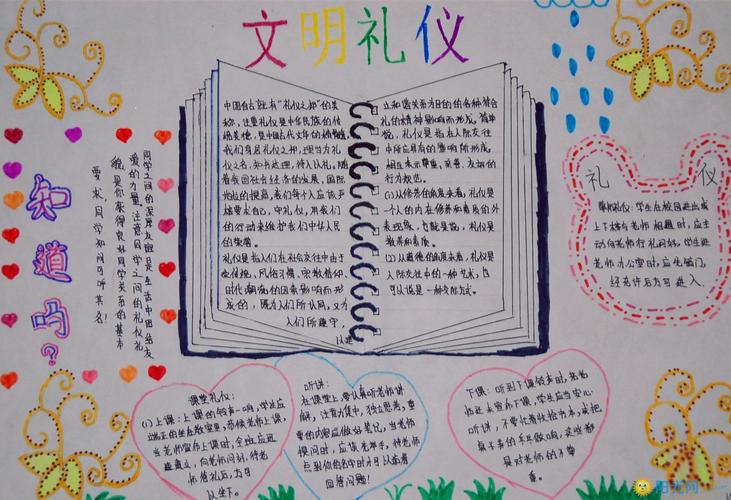 文明礼仪
中国自古就有“礼仪之邦”的美
称，注重礼仪是中华民族的传
统美德，是中国古代文明的精髓。
我们身居礼仪之邦，理当为礼
仪之名，知书达理，待人以礼。随
着我国社会经济的发展，国际
地位的提高，我们每个人应该严
格要求自己，守礼仪，用我们
的行动来维护我们中华人民
的尊严。
礼仪是指人们在社会交往中由于
受传统，风俗习惯，宗教信仰
时代潮流的因素影响而形
成的，既为人们所认同，又为
人们所遵守，
以建
立和谐关系为目的的各种符合
礼的精神
说，礼仪是指在人际交往
中所应具有的
相互表示尊重，亲善，友好的
行为规范。
(1)从修养的角度来看，礼仪是
一个人的内在修养和素质的外
表现像，也就是说，礼仪是
教养和素质。
(2)从道德的角度来看，礼仪是
人际交往中的一种艺术，也
可以说是一种交际方式。
知道吗？
同学之间的深厚友谊是生活中团结友
爱的力量。注意同学之间的礼仪礼
貌是你获得良好同学关系的基本
要求，同学知间可听其名！
礼仪
尊师礼仪：学生在校园进出或
上下楼与老师相遇时，应主
动向老师行礼问好，学生进
老师办公室时，应先敲门，
经允许后方可进入。
课堂礼仪：
(1)上课：上课的铃声一响，学生应
端正的坐在教室里，恭候老师上课，
当老师宣布上课时，全班应迅
速肃立，向老师问好，待老
师答礼后，方可
以坐下。
听讲：
在课堂上，要认真听老师讲
解，注意力集中，独立思考，重
要的内容应做好笔记。当老师
提问时，应该先举手，待老师
点到你的名字时才可以站着
回答问题！
下课：听到下课铃声时，若老
师还未宣布下课，学生应当安心
听讲，不要忙着收拾书本，或把
桌子弄的乒乓做响，这些都
是对老师的不尊
重。
阳光网